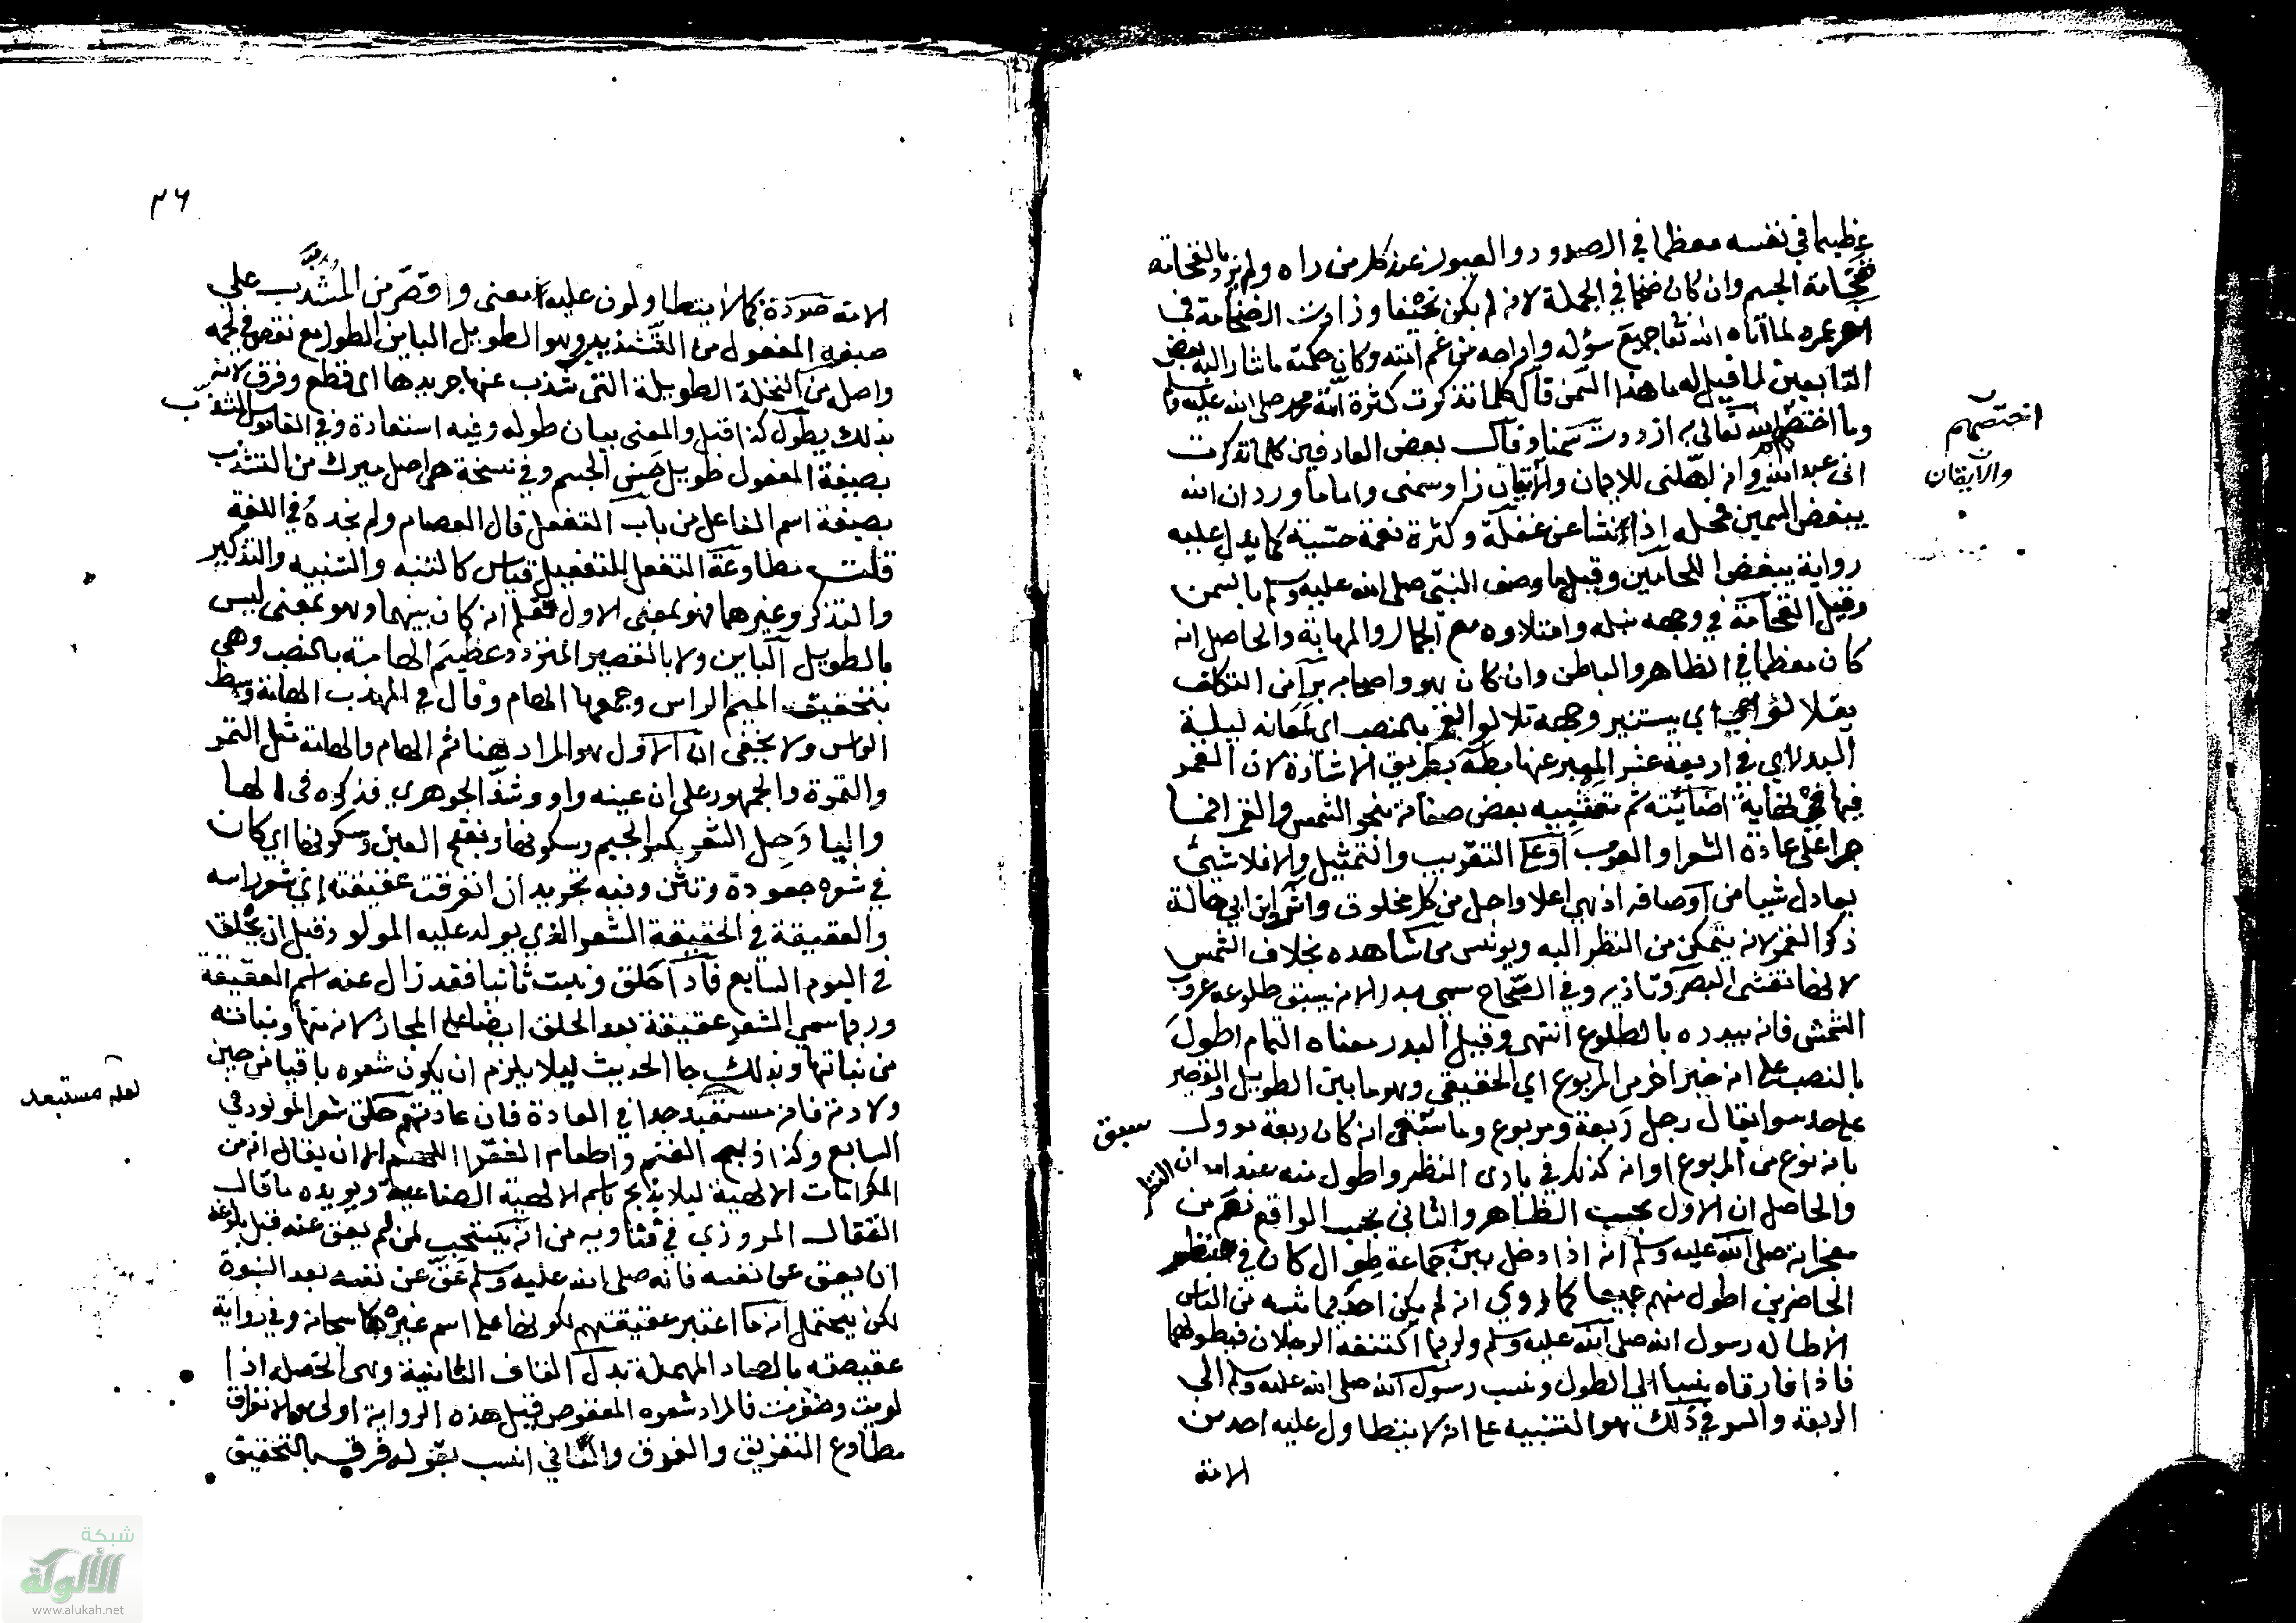 عظيما في نفسه معظما في الصدور والعيون عند كل من راه ولم يرد بالفخامة
فخامة الجسم وان كان ضخما في الجملة لانه لم يكن نحيفا وزادت الضخامة في
اخر عمره لما اتاه الله تعا جميع سؤله واراحه من غم امته وكان حكمته ما اشار اليه بعض
التابعين لما قيل له ما هذا السمن قال كلما تذكرت كثرة امة محمد صلى الله عليه وسلم
وما اختصهم الله تعالى به ازددت سمنا وقال بعض العارفين كلما تذكرت
انى عبد الله وانه اهلنى للايمان والايقان زاد سمنى واما ما ورد ان الله
يبغض السمين فمحله اذا نشا عن غفلة وكثرة نعمة حسية كما يدل عليه
رواية يبغض اللحامين وقيل ما وصف النبي صلى الله عليه وسلم بالسمن
وقيل الفخامة في وجهه نبله وامتلاوه مع الجمال والمهابة والحاصل انه
كان معظما في الظاهر والباطن وان كان هو واصحابه براء من التكلف
يتلالؤ اي يستنير وجهه تلالؤ القمر بالنصب اي لمعانه ليلة
البدر اي في اربعة عشر المعبر عنها بطه بطريق الاشارة لان القمر
فيها في نهاية اضائته ثم تشبيه بعض صفاته بنحو الشمس والقمر انما
جرا على عادة الشعرا والعرب او على التقريب والتمثيل والا فلا شيئ
يعادل شيا من اوصافه اذ هي اعلا واجل من كل مخلوق واثر ابن ابي هالة
ذكر القمر لانه يتمكن من النظر اليه ويونس من شاهده بخلاف الشمس
لانها تغشى البصر وتاذيه وفي الصحاح سمي بدرا لانه يسبق طلوعه غروب
الشمس فانه يبدره بالطلوع انتهى وقيل البدر معناه التمام اطول
بالنصب على انه خبر اخر من المربوع اي الحقيقي وهو ما بين الطويل والقصير
على حد سوا يقال رجل ربعة ومربوع وما سبق انه كان ربعة موول
بانه نوع من المربوع اوانه كذلك في بادى النظر واطول منه عند امعان النظر
والحاصل ان الاول بحسب الظاهر والثاني بحسب الواقع نعم من
معجزاته صلى الله عليه وسلم انه اذا دخل بين جماعة طوال كان في نظر
الحاضرين اطول منهم جميعا كما روي انه لم يكن احد يماشيه من الناس
الا طاله رسول الله صلى الله عليه وسلم ولربما اكتنفه الرجلان فيطولهما
فاذا فارقاه ينسبا الي الطول ونسب رسول الله صلى الله عليه وسلم الي
الربعة والسر في ذلك هو التنبيه على انه لا يتطاول عليه احد من
الامة
اختصهم
والايقان
سبق
٣٦
الامة صورة كما لا يتطاولون عليه معنى واقصر من المشذب على
صيغة المفعول من التشذيب وهو الطويل الباين الطول مع نقص في لحمه
واصله من النخلة الطويلة التي شذب عنها جريدها اى قطع وفرق لانه
بذلك يطول كذا قيل والمعنى بيان طوله وفيه استعارة وفي القاموس المشذب
بصيغة المفعول طويل حسن الجسم وفي نسخة هي اصل ميرك من التشذب
بصيغة اسم الفاعل من باب التفعل قال العصام ولم نجده في اللغة
قلت مطاوعة التفعل للتفعيل قياس كالتنبه والتنبيه والتذكير
والتذكر وغيرهما فهو بمعنى الاول فعلم انه كان بينهما وهو بمعنى ليس
بالطويل الباين ولا بالقصير المتردد عظيم الهامة بالنصب وهي
بتخفيف الميم الراس وجمعها الهام وقال في المهذب الهامة وسط
الراس ولا يخفى ان الاول هو المراد هنا ثم الهام والهامة مثل التمر
والتمرة والجمهور على ان عينه واو وشذ الجوهري فذكره في الها
واليا رجل الشعر بكسر الجيم وسكونها وبفتح العين وسكونها اي كان
في شعره جعودة وتثن وفيه تجريد ان انفرقت عقيقته اي شعر راسه
والعقيقة في الحقيقة الشعر الذي يولد عليه المولود قبل ان يحلق
في اليوم السابع فاذا حلق ونبت ثانيا فقد زال عنه اسم العقيقة
وربما سمي الشعر عقيقة بعد الحلق ايضا على المجاز لانه منها ونباته
من نباتها وبذلك جا الحديث ليلا يلزم ان يكون شعره باقيا من حين
ولادته فانه مستبعد جدا في العادة فان عادتهم حلق شعر المولود في
السابع وكذا ذبح الغنم واطعام الفقرا اللهم الا ان يقال انه من
الكرامات الالهية ليلا يذبح باسم الالهة الصناعية ويويده ما قال
القفال المروزي في فتاويه من انه يستحب لمن لم يعق عنه قبل بلوغه
ان يعق عن نفسه فانه صلى الله عليه وسلم عق عن نفسه بعد النبوة
لكن يحتمل انه ما اعتبر عقيقتهم لكونها على اسم غيره سبحانه وفي رواية
عقيصته بالصاد المهملة بدل القاف الثانية وهي الخصلة اذا
لويت وضفرت فالمراد شعره المعقوص قيل هذه الرواية اولى والانفراق
مطاوع التفريق والفرق والثاني انسب بقوله فرق بالتخفيف
لعله مستبعد
شبكة
الألوكة
www.alukah.net